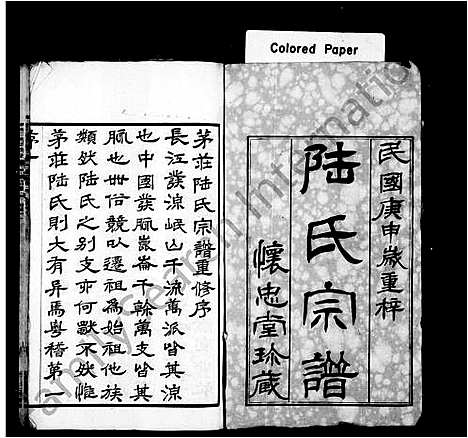 Colored Paper
民國庚申歲重梓
陸氏宗譜
懷忠堂珍藏
茅莊陸氏宗譜重修序
長江發源岷山千流萬派皆其源
也中國發脈崑崙千榦萬支皆其
脈也世俗競以遷祖為始祖他族
類然陸氏之别支亦何獨不然惟
茅莊陸氏則大有異焉粤稽第一
序一